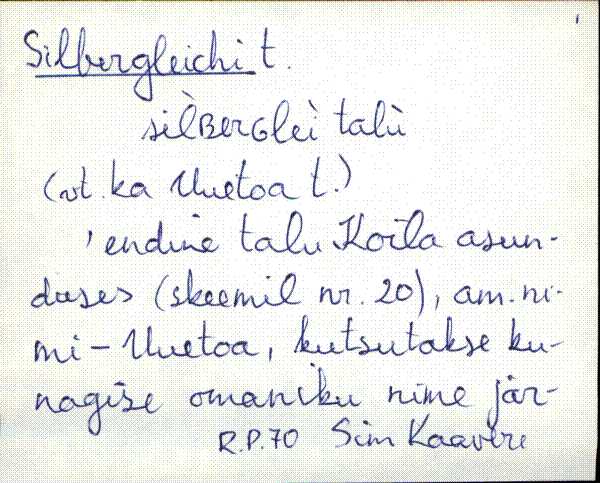 Silbergleichi t.
sìlBerGleì talù
(vt. ka Uuetoa t.)
'endine talu Koila asun-
duses (skeemil nr. 20), am. ni-
mi – Uuetoa, kutsutakse ku-
nagise omaniku nime jär-
R.P.70 Sim Kaavere